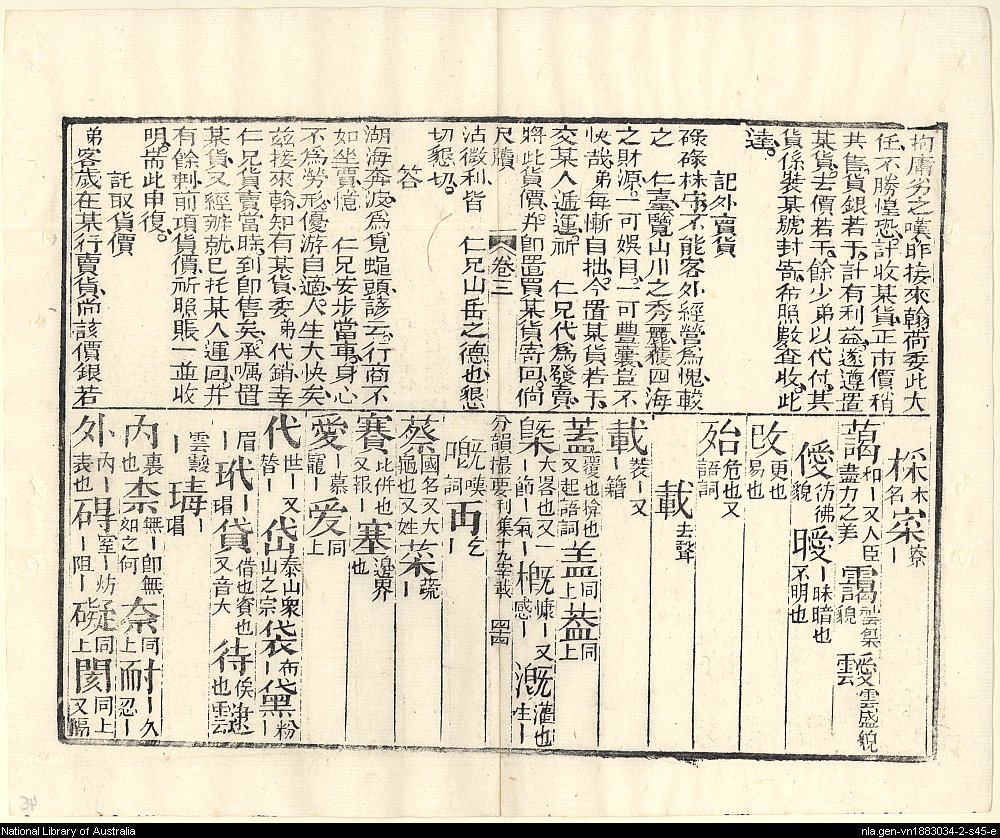 拘庸劣之嘆、昨接來翰、荷委此大
任、不勝惶恐、計收某貨、正市價稍
共售貨銀若干、計有利益、遂遵置
某貨、去價若干、餘少弟以代付、其
貨係裝某號封寄、希照數查收、此
達。
託外賣貨
碌碌株守、不能客外經營為愧、較
之 仁臺覽山川之秀麗、獲四海
之財源、一可娛目、一可豐囊、豈不
快哉、弟每慚自拙、今置某貨若干、
交某人遞運、祈 仁兄代為發賣、
將此貨價、并卽置買某貨寄回、倘
尺牘 卷三
沾微利、皆 仁兄山岳之德也、懇
切懇切。
答
湖海奔波、為覓蠅頭、諺云、行商不
如坐賈、憶 仁兄安步當車、身心
不為勞形、優游自適、人生大快矣、
茲接來翰、知有某貨委弟代銷、幸
仁兄貨賣當時、到卽售矣、承囑置
某貨、又經辦就、已托某人運回、并
有餘剩前項貨價、祈照賬一並收
明、耑此申復。
託取貨價
弟客歲在某行賣貨、尚該價銀若
棌木名 寀寮丨
藹和丨又人臣盡力之美 靄雲集貌 靉雲盛貌 雲
僾彷彿貌 曖丨昧暗也不明也
改更也易也
殆危也又語詞
載去聲
載裝丨又丨籍
蓋覆也掩也又起語詞 盖同上 葢同上
槩大畧也又丨節丨氣丨 概感丨 慨慷丨又 溉灌也 漑生丨
分韻撮要刊集十九宰載 四四
嘅嘆詞 丐乞丨
蔡國名又大龜也又姓 菜蔬丨
賽比併也又報丨 塞邊界也
愛丨慕寵丨 爱同上
代世丨又替丨 岱泰山眾山之宗 袋布丨 黛粉丨
眉丨 玳丨瑁 貸借也貧也又音大 待俟也 逮
雲靉丨
瑇丨瑁
內裏也 柰無丨卽無如之何 奈同上 耐丨久忍丨
外丙丨表也 碍窒丨丨妨阻丨 礙同上 閡同上又隔
National Library of Australia
nla.gen-vn1883034-2-s45-e